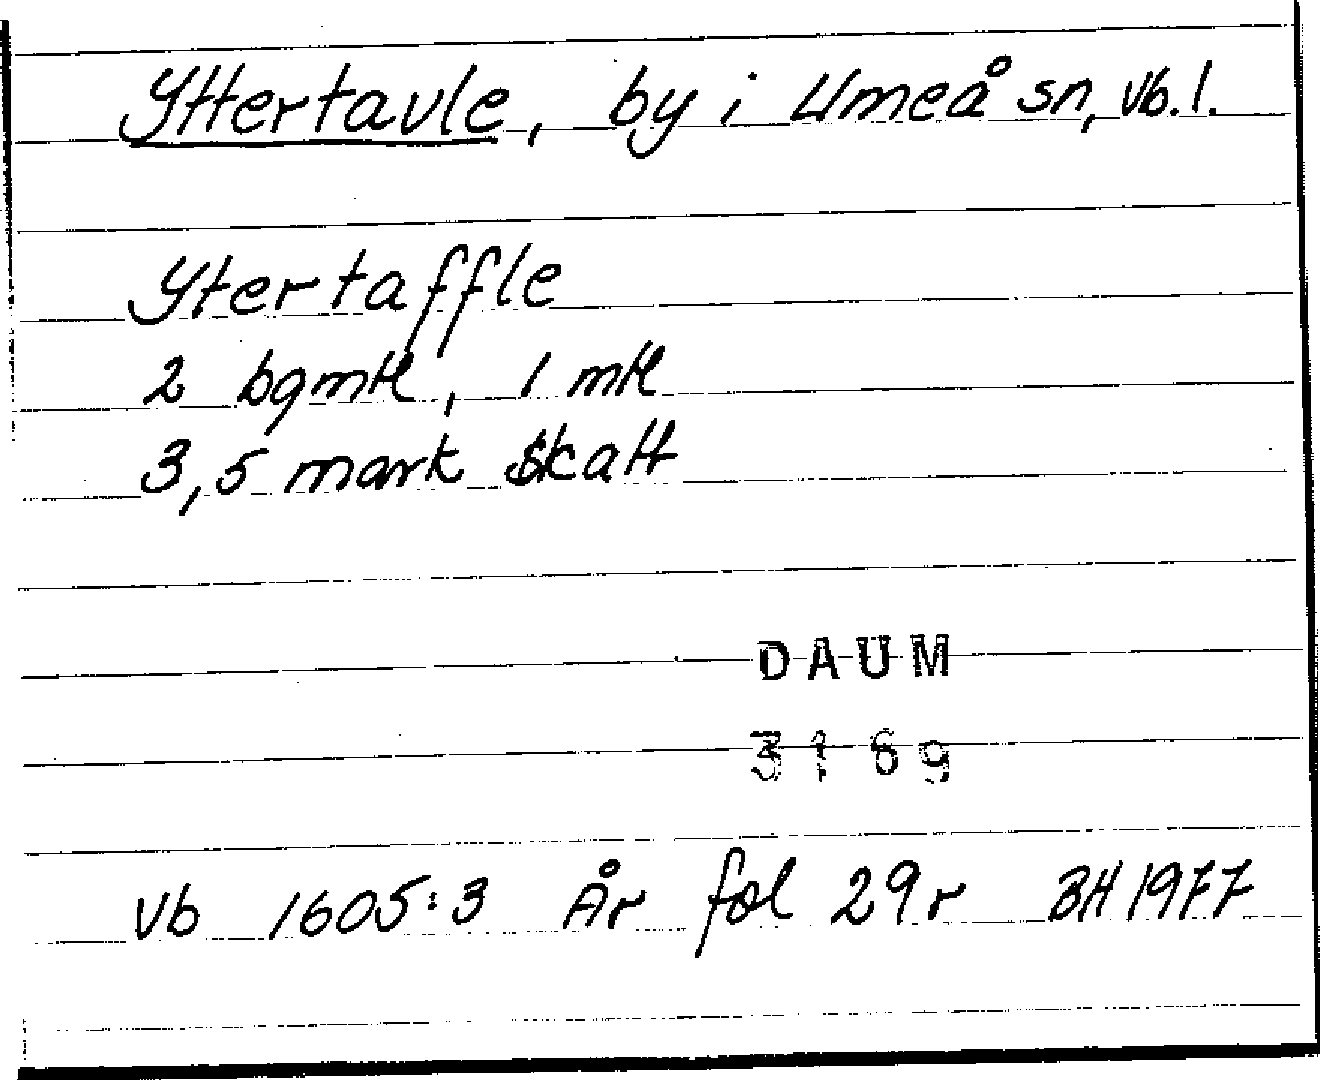 Yttertavle, by i Umeå sn, Vb. l.
Ytertaffle
2 bgmtl, 1 mtl
3,5 mark skatt
DAUM
3169
Vb 1605:3 År fol 29r BH 1977